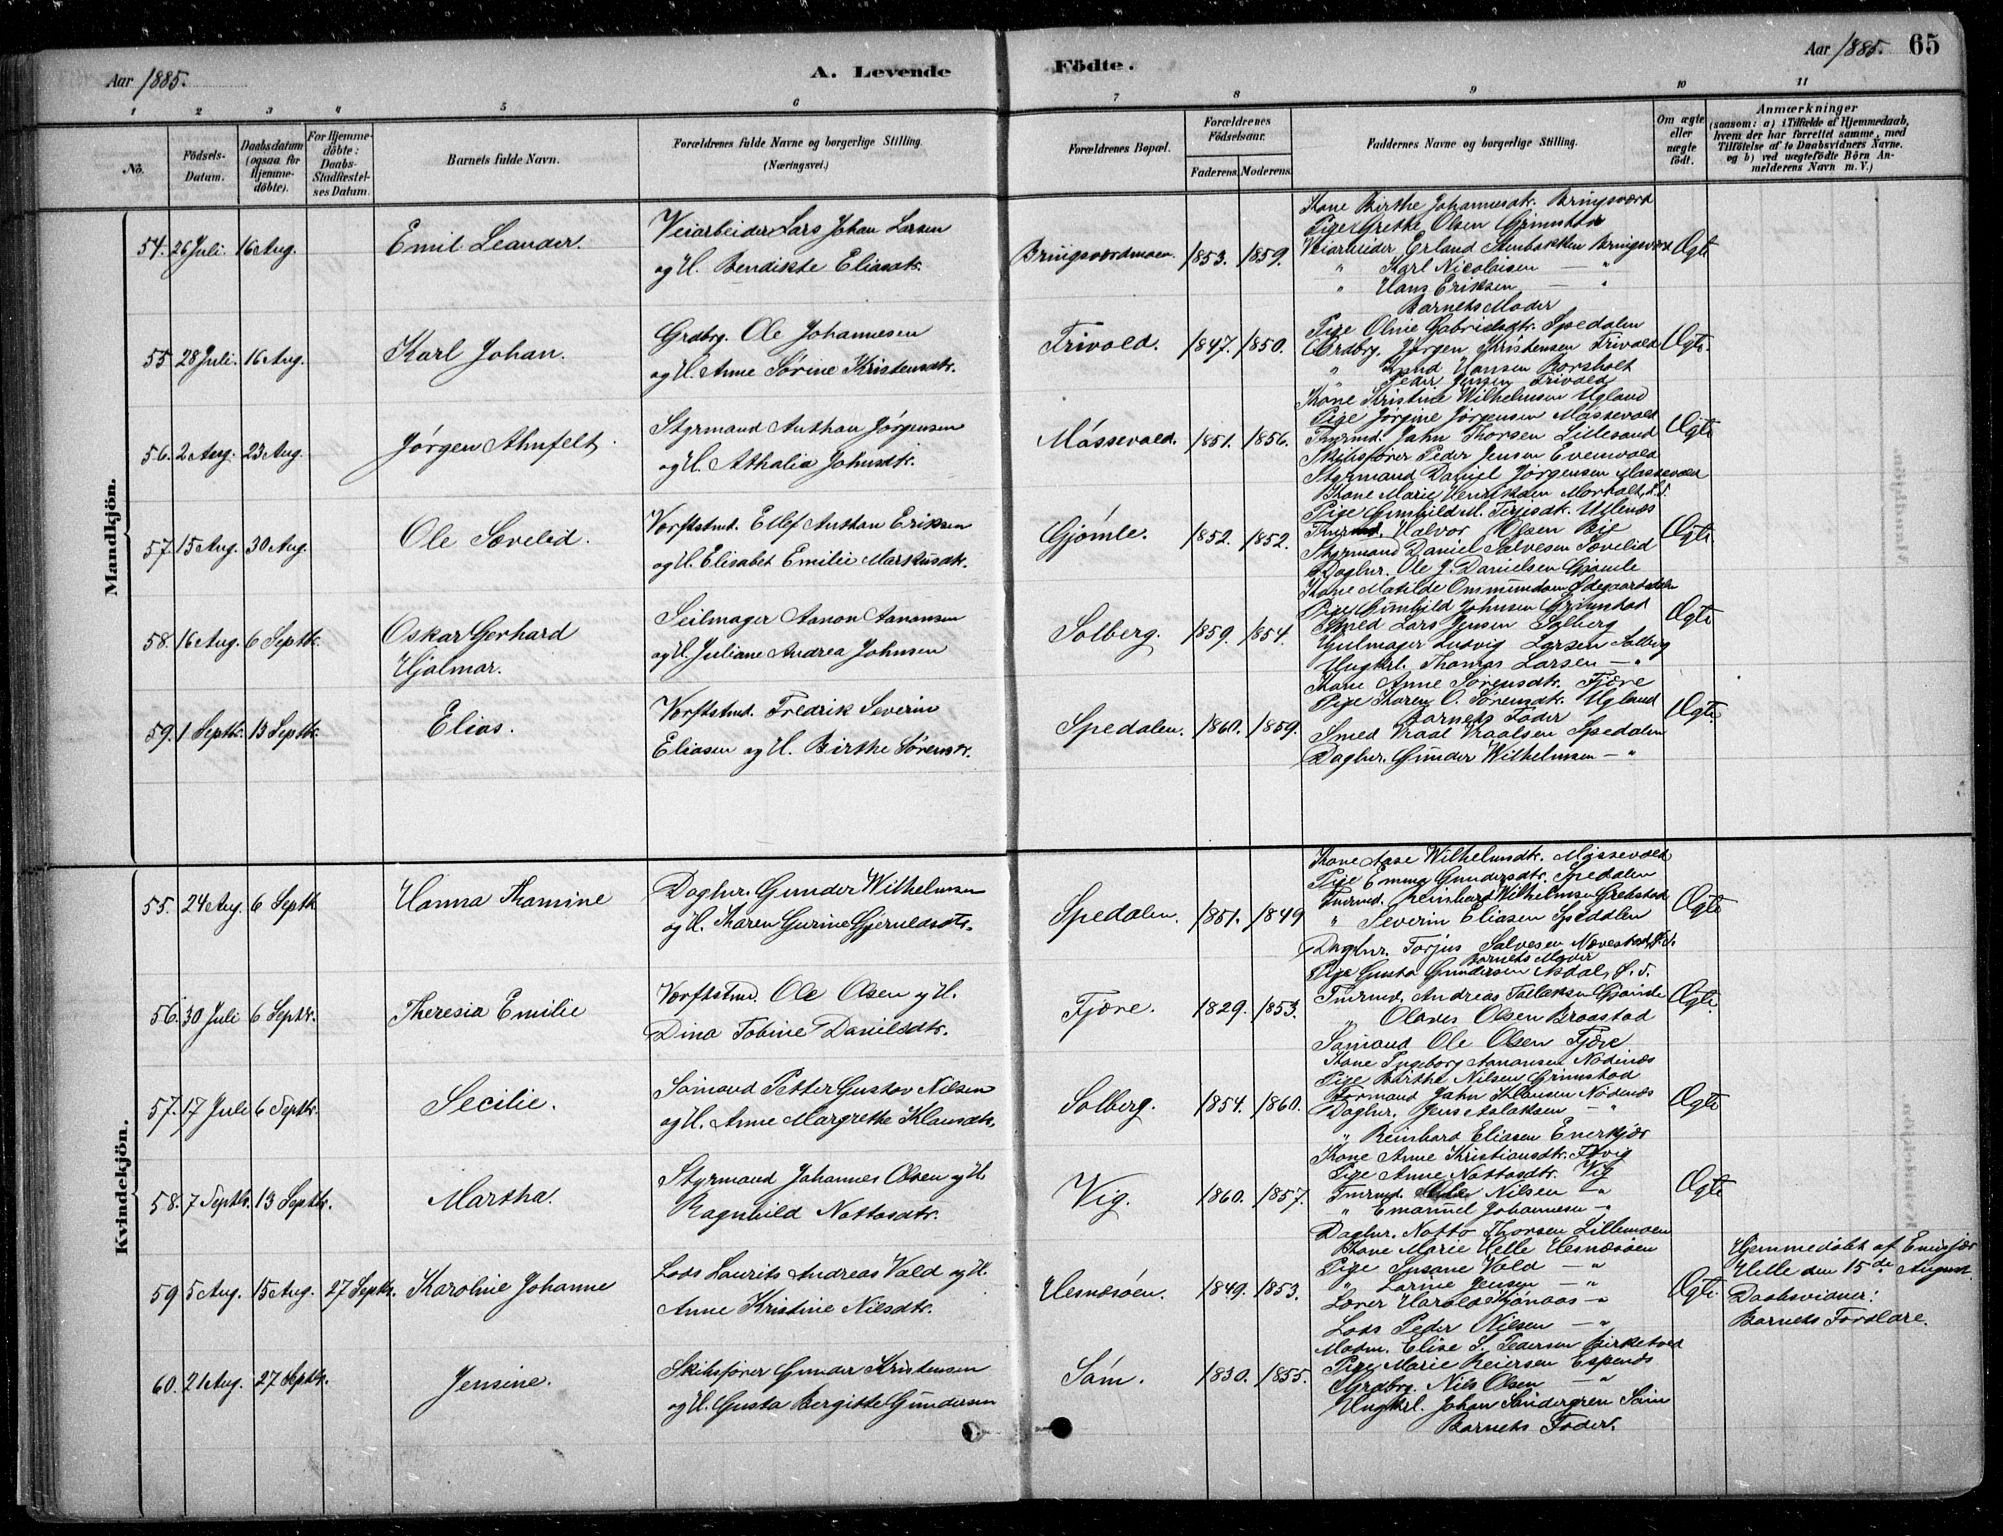 Aar 1885.
A. Levende
Födte.
Aar 1885. 65
1 2 3 4 5 6 7 8 9 10 11
No.
Födsels-Datum.
Daabsdatum (ogsaa for Hjemme-döbte).
For Hjemme-döbte: Daabs-Stadfæstel-ses Datum.
Barnets fulde Navn.
Forældrenes fulde Navne og borgerlige Stilling.
(Næringsvei.)
Forældrenes Bopæl.
Forældrenes Födselsaar.
Faderens. Moderens.
Faddernes Navne og borgerlige Stilling.
Om ægte eller uægte födt.
Anmærkninger
(saasom: a) i Tilfælde af Hjemmedaab,
hvem der har forrettet samme, med
Tilföielse af to Daabsvidners Navne.
og b) ved uægtefödte Börn An-
melderens Navn m. V.)
Mandkjön.
54. 26 Juli. 16 Aug. Emil Leander.
Veiarbeider Lars Johan Larsen
og H. Bendikte Eliasdtr.
Bringsværdmoen. 1853. 1859.
Kone Birthe Johannesdtr. Bringsværd
Pige Grethe Olsen Grimstad
Veiarbeider Erland Stenbakken Bringsværd
" Karl Nicolaisen — "
" Hans Eriksen — "
Barnets Moder
Ægte
55 28 Juli. 16 Aug. Karl Johan.
Grdbrg. Ole Johannesen
og H. Anne Sørine Kristensdtr.
Trivold. 1847. 1850.
Pige Oline Gabrielsdtr. Spedalen
Grdbrg. Jørgen Christensen Trivold
" Knud Hansen Borsholt
" Peder Jensen Trivold
Ægte.
56. 2 Aug. 23 Aug. Jørgen Ahnfelt.
Styrmand Anthon Jørgensen
og H. Athalia Johnsdtr.
Møssevold. 1851. 1856.
Kone Kristine Wilhelmsen Ugland
Pige Jørgine Jørgensen Møssevold
Tmrmd. John Thorsen Lillesand
Skibsfører Peder Jensen Evenvold
Styrmand Daniel Jørgensen Møssevold
Ægte
57. 15 Aug. 30 Aug. Ole Sævelid.
Værftstmd. Ellef Anthon Eriksen
og H. Elisabet Emilie Markusdtr.
Gjømle. 1852. 1852.
Pige Gunhild M. Terjesdtr. Ullenæs
Tmrmd. Halvor Olsen Bie
Styrmand Daniel Salvesen Sævelid
Dagbr. Ole J. Danielsen Gjømle
Ægte.
58. 16 Aug. 6 Septbr. Oskar Gerhard
Hjalmar.
Seilmager Aanon Aanonsen
og H. Juliane Andrea Johnsen
Solberg. 1859. 1854.
Kone Matilde Ommundsen Ødegaardsdalen
Pige Gunhild Johnsen Grimstad
Smed Lars Jensen Solberg
Hjulmager Ludvig Larsen Solberg
Ungkrl. Thomas Larsen — "
Ægte
59. 1 Septbr. 13 Septbr. Elias.
Værftstmd. Fredrik Severin
Eliasen og H. Birthe Sørensdtr.
Spedalen. 1860. 1859.
Kone Anne Sørensdtr. Fjære
Pige Karen O. Sørensdtr. Ugland
Barnets Fader
Smed Vraal Vraalsen Spedalen
Dagbr. Gunder Wilhelmsen — "
Ægte.
Kvindekjön.
55. 24 Aug. 6 Septbr. Hanna Thomine
Dagbr. Gunder Wilhelmsen
og H. Karen Gurine Gjeruldsdtr.
Spedalen. 1851. 1849
Kone Aase Wilhelmsdtr. Møssevold
Pige Emma Gundersdtr. Spedalen
Tmrmd. Reinhard Wilhelmsen Grebstad
" Severin Eliasen Spedalen
Dagbr. Torjus Salvesen
Ægte
56. 30 Juli 6 Septbr. Theresia Emilie
Værftstmd. Ole Olsen og H.
Dina Tobine Danilsdtr.
Fjære. 1829. 1853.
Barnets Moder
Pige Gusta Gundersen
Tmrmd. Andreas Tallaksen
" Olaves Olsen Braastad
Sømand Ole Olsen Fjære
Ægte.
57. 17 Juli 6 Septbr. Secilie.
Sømand Petter Gustav Nilsen
og H. Anne Margrethe Klausdtr.
Solberg. 1854. 1860.
Kone Ingeborg Aanonsen Nødenæs
Pige Birthe Nilsen Grimstad
Formand John Klausen Nødenæs
Dagbr. Jens Aslaksen — "
" Reinhard Eliasen Enerkjær
Ægte
58. 7 Septbr. 13 Septbr. Martha.
Styrmand Johannes Olsen og H.
Ragnhild Nottosdtr.
Vig. 1860. 1857.
Kone Anne Kristiansdtr. Fevig
Pige Anne Nottosdtr. Vig
Tmrmd. Nilsen — "
" Emanuel Johannesen — "
Dagbr. Notto Thorsen Lillemoen
Ægte
59 5 Aug. 15 Aug. 27 Septbr. Karoline Johanne
Lods Laurits Andreas Vold og H.
Anne Kristine Nilsdtr.
Hesnæsøen. 1849. 1853.
Kone Marie Helle Hesnæsøen
Pige Susane Vold — "
" Larine Jensen — "
Lærer Harald Kjønaas — "
Lods Peder Nilsen — "
Ægte.
Hjemmedøbt af
Helle den 15de August.
Daabsvidner:
Barnets Forældre.
60. 21 Aug. 27 Septbr. Jensine.
Skibsfører Gunder Kristensen
og H. Gusta Bergitte Gundersen
Søm. 1830. 1855.
Madm. Elise S. Pedersen Birketved
Pige Marie Reiersen Espenæs
Grdbrg. Nils Olsen — "
Ungkrl. Johan Søndergren Søm
Barnets Fader.